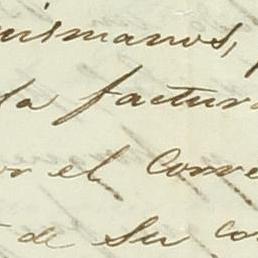 uismanos,
la factura
or el Corre
de su co